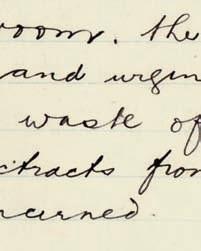 room. the
and urgin
waste of
ctracts from
ncurned.